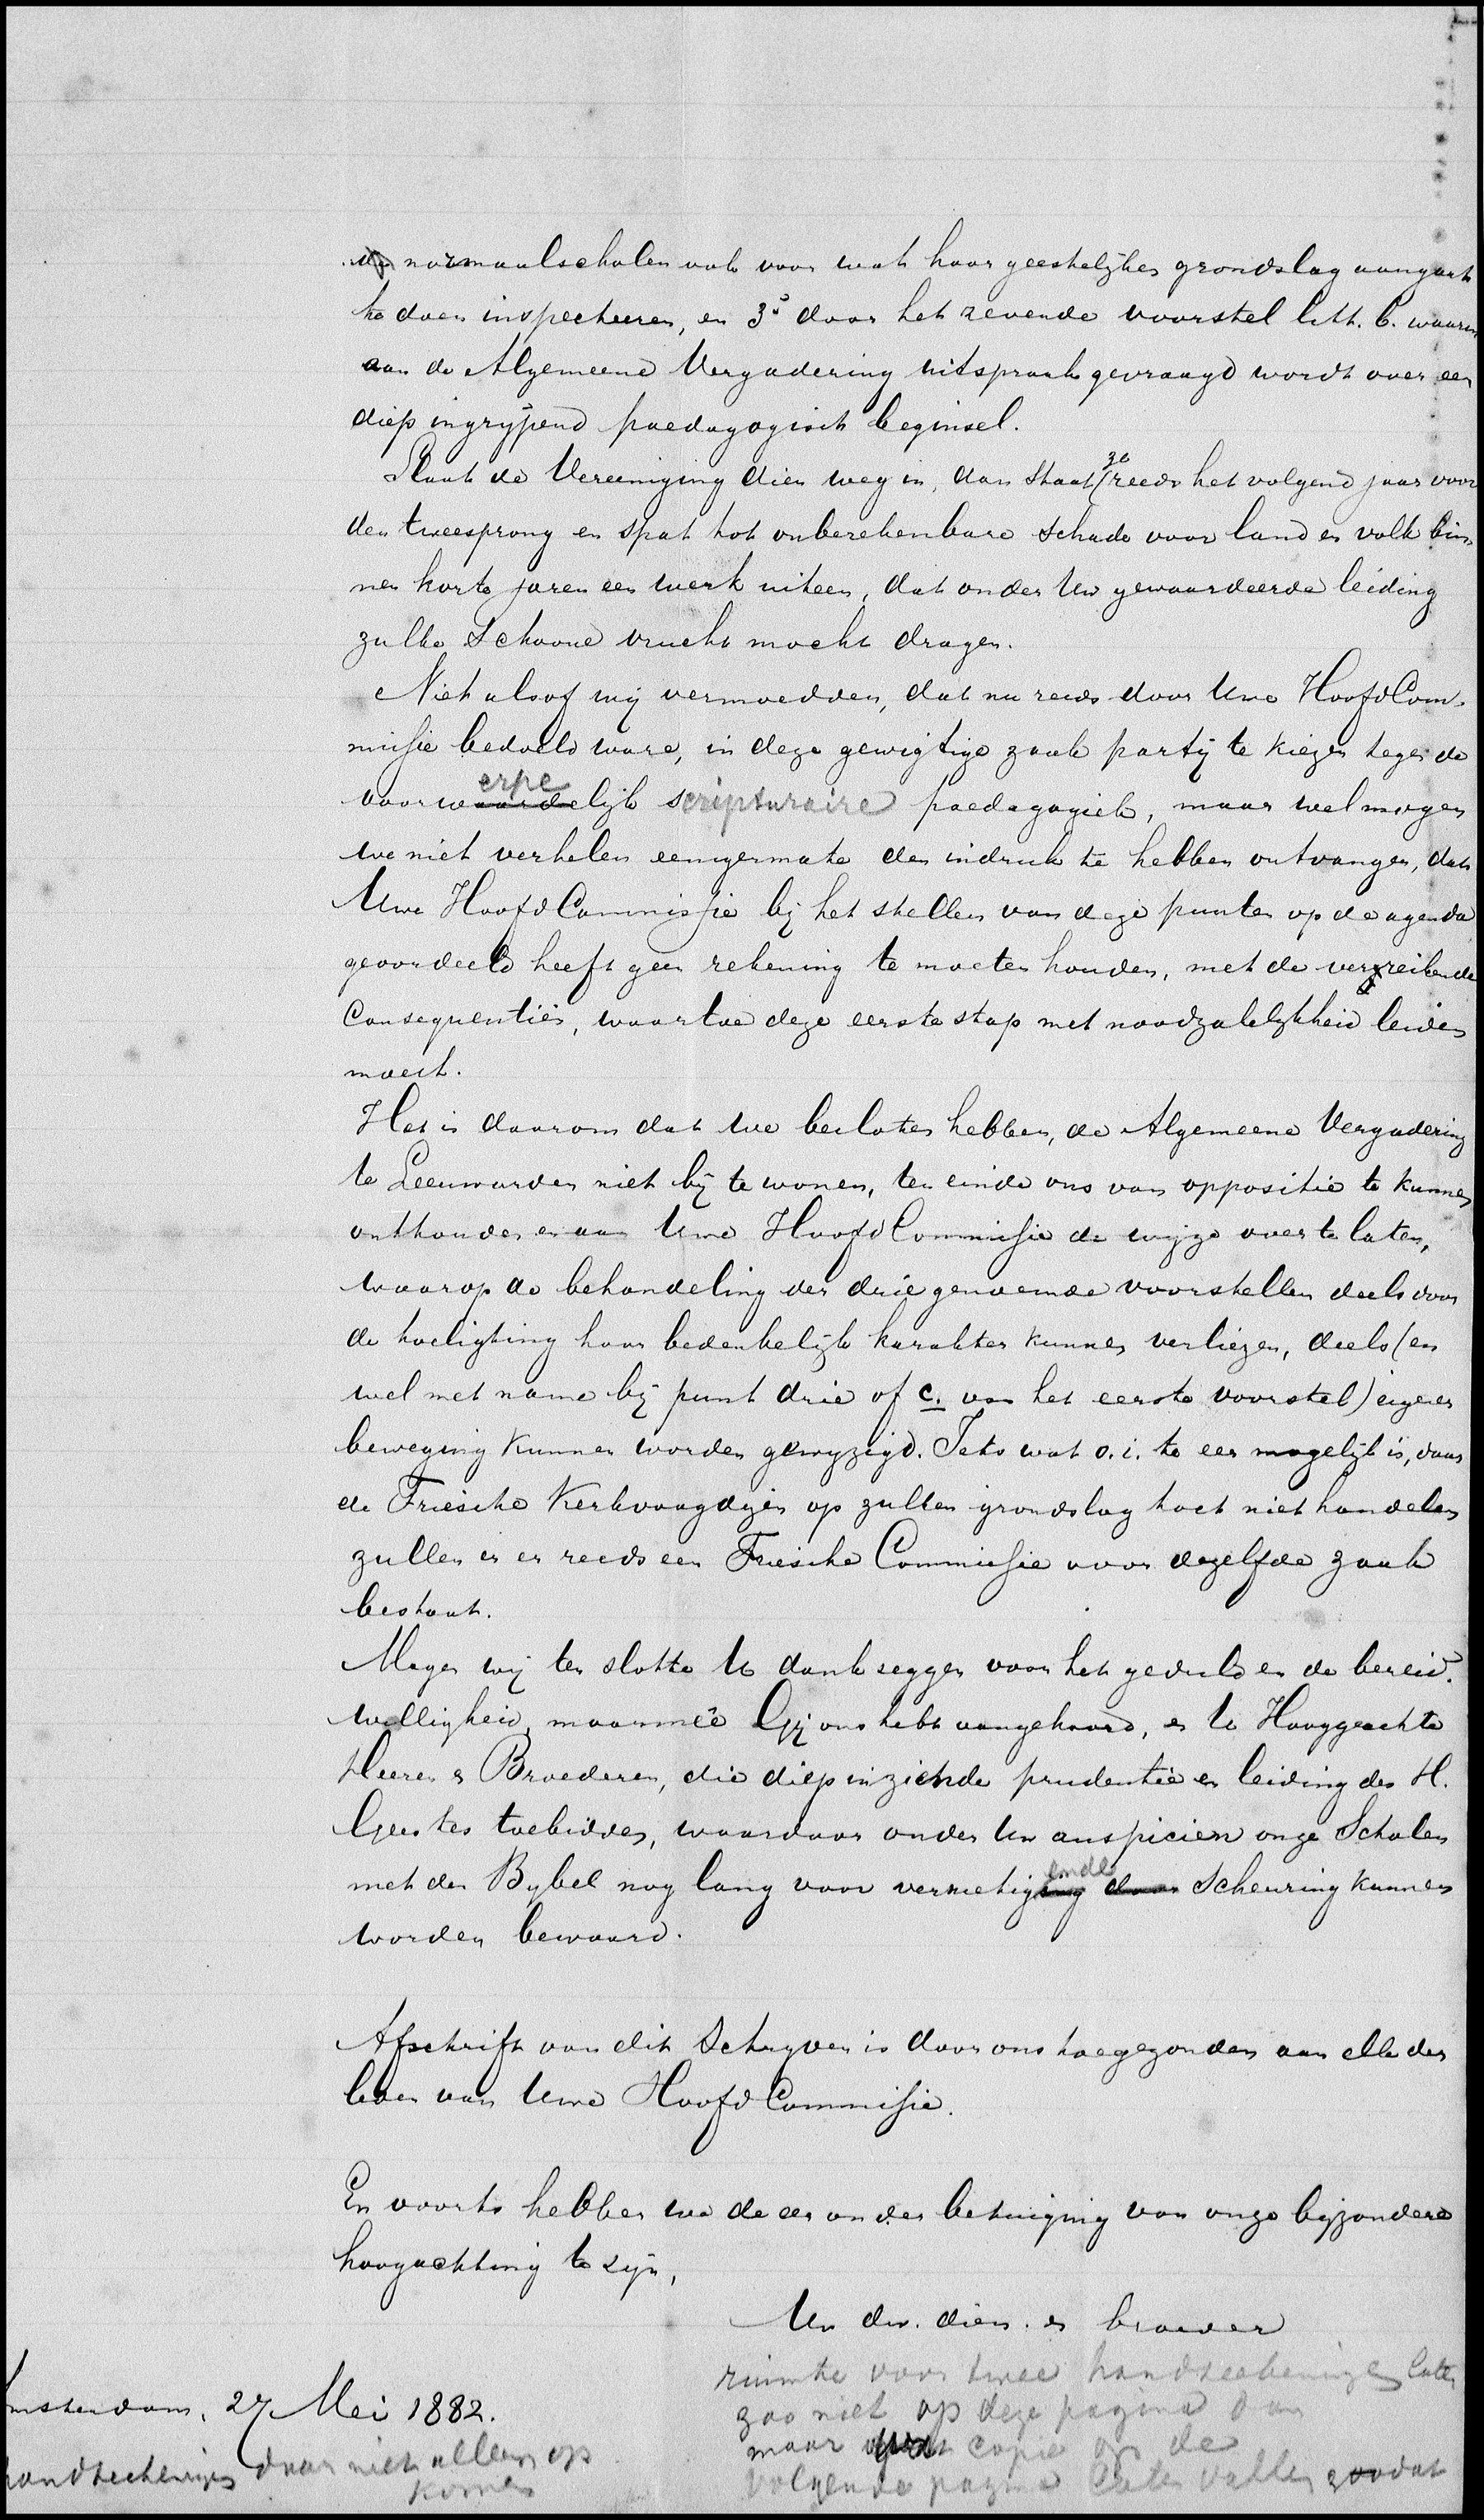 de normaalscholen ook voor wat haar geestelijken grondslag aangaat
te doen inspecteeren, en 3º door het zevende voorstel litt. C. waarin
aan de Algemeene Vergadering uitspraak gevraagd wordt over een
diep ingrijpend paedagogisch beginsel.
Slaat de Vereeniging dien weg in, dan staat ze reeds het volgend jaar voor
den tweesprong en spat tot onberekenbare schade voor land en volk bin-
nen korte jaren een werk uiteen, dat onder Uw gewaardeerde leiding
zulke schoone vrucht mocht dragen.
Niet alsof wij vermoedden, dat nu reeds door Uwe HoofdCom-
missie bedoeld ware, in deze gewigtige zaak partij te kiezen tegen de
voorwerpelijk scripturaire paedagogiek, maar wel mogen
we niet verhelen eenigermate den indruk te hebben ontvangen, dat
Uwe HoofdCommissie bij het stellen van deze punten op de agenda
geoordeeld heeft geen rekening te moeten houden, met de verreikende
consequentiën, waartoe deze eerste stap met noodzakelijkheid leiden
moest.
Het is daarom dat we besloten hebben, de Algemeene Vergadering
te Leeuwarden niet bij te wonen, ten einde ons van oppositie te kunnen
onthouden en aan Uwe HoofdCommissie de wijze over te laten,
waarop de behandeling der drie genoemde voorstellen deels door
de toeligting haar bedenkelijk karakter kunnen verliezen, deels (en
wel met name bij punt drie of c. van het eerste voorstel) eigener
beweging kunnen worden gewijzigd. Iets wat o.i. te eer mogelijk is, daar
de Friesche Kerkvoogdijen op zulken grondslag toch niet handelen
zullen en er reeds een Friesche Commissie voor dezelfde zaak
bestaat.
Mogen wij ten slotte U dank zeggen voor het geduld en de bereid-
willigheid, waarmeê Gij ons hebt aangehoord, en U Hooggeachte
Heeren & Broederen, die diep inziende prudentie en leiding des H.
Geestes toebidden, waardoor onder Uw auspiciën onze Scholen
met den Bijbel nog lang voor vernietigende scheuring kunnen
worden bewaard.
Afschrift van dit Schrijven is door ons toegezonden aan elk der
leden van Uwe HoofdCommissie.
En voorts hebben we de eer onder betuiging van onze bijzondere
hoogachting te zijn,
Uw dw. dien. en broeder
ruimte voor twee handteekeningen laten
Amsterdam, 27 Mei 1882.
zoo niet op deze pagina dan
maar copie op de
handteekeningen daar niet alleen op
volgende pagina laten vallen zoodat
komen